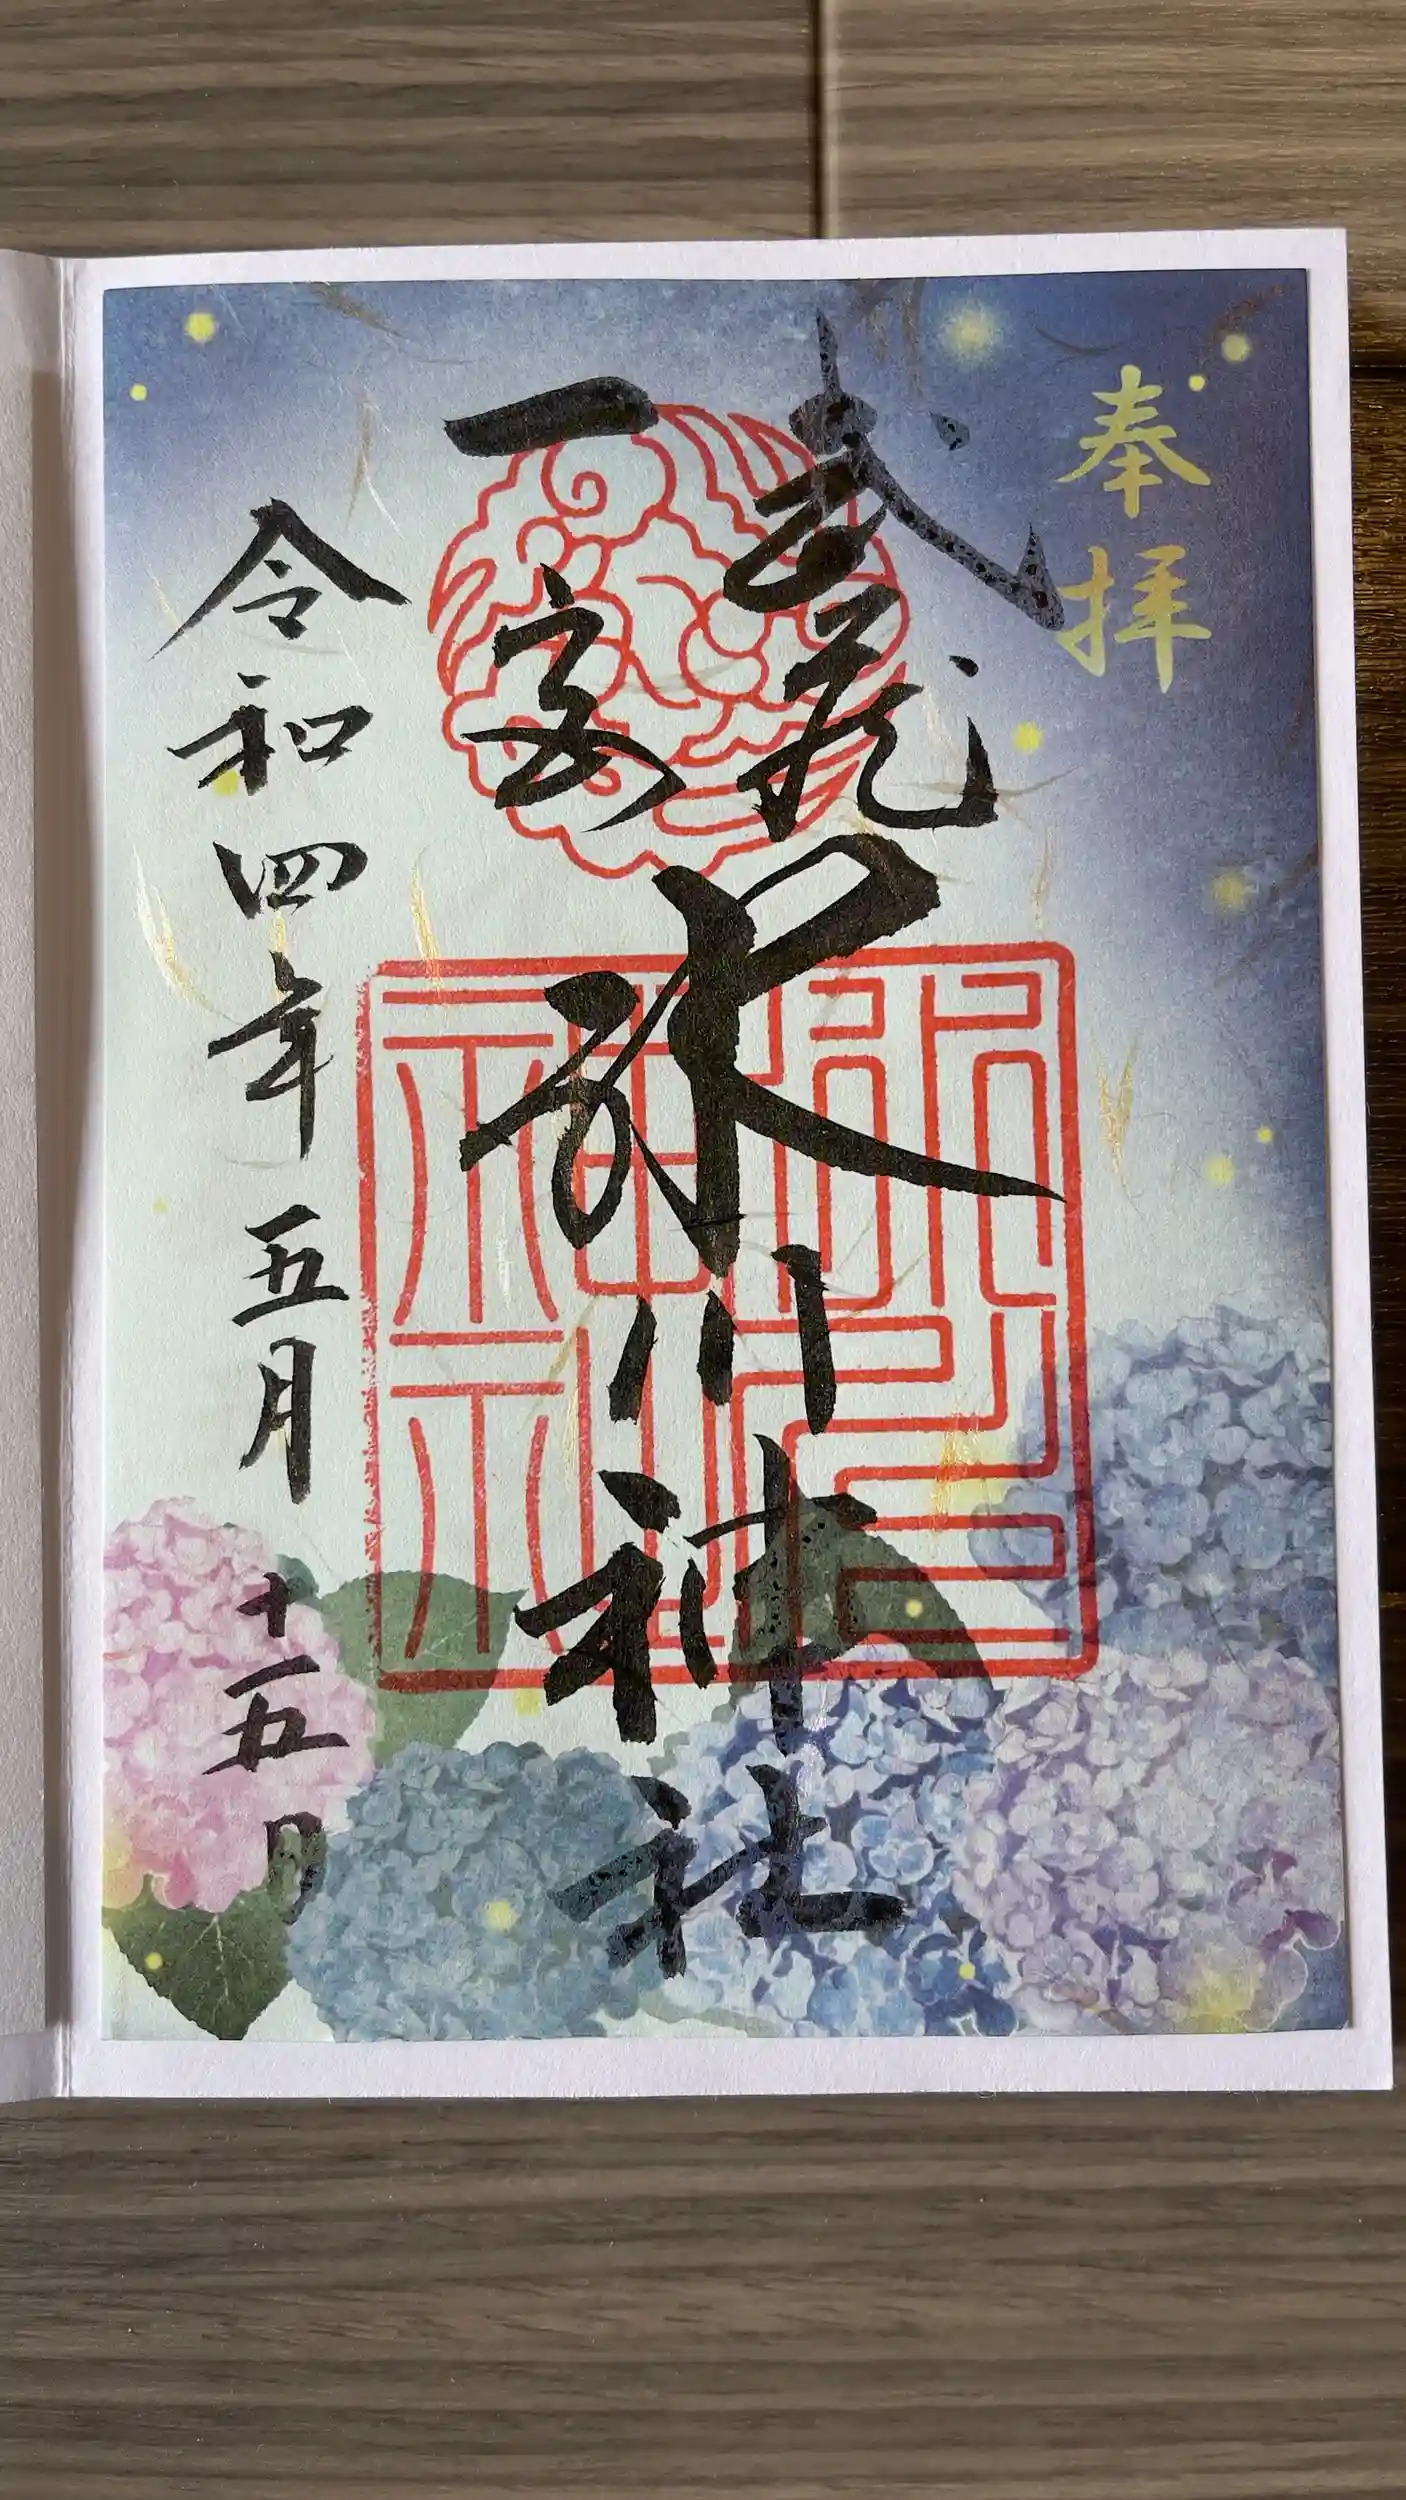 奉拝
武蔵
一宮
氷川神社
令和四年五月十五日
氷川
神社